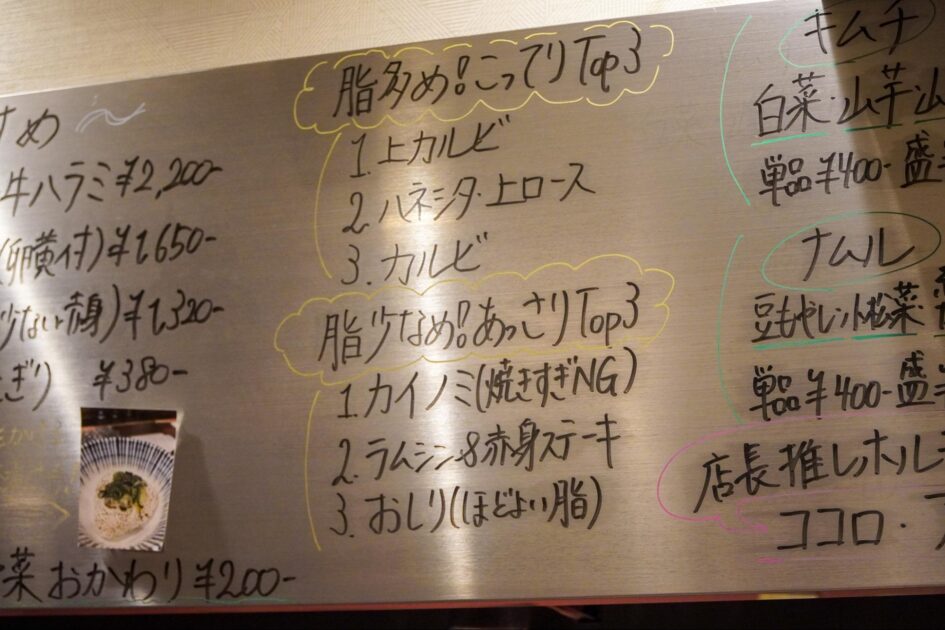 すめ
牛ハラミ ¥2,200-
(卵黄付) ¥1,650-
少ない赤身) ¥1,320-
ぎり) ¥380-
菜おかわり ¥200-
脂多め!こってりTop3
1.上カルビ
2.ハネシタ・上ロース
3.カルビ
脂少なめ!あっさりTop3
1.カイノミ(焼きすぎNG)
2.ラムシン&赤身ステーキ
3.おしり(ほどよい脂)
キムチ
白菜・山芋・山
単品¥400- 盛
ナムル
豆もやし・小松菜・
単品¥400- 盛
店長推しホル
ココロ・